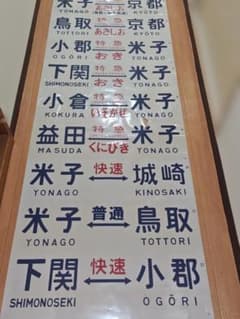 米子 京都
YONAGO あさしお KYŌTO
鳥取 特急 京都
TOTTORI あさしお KYŌTO
小郡 特急 米子
OGŌRI おき YONAGO
下関 特急 米子
SHIMONOSEKI おき YONAGO
小倉 特急 米子
KOKURA いそかぜ YONAGO
益田 特急 米子
MASUDA くにびき YONAGO
米子 快速 城崎
YONAGO KINOSAKI
米子 普通 鳥取
YONAGO TOTTORI
下関 快速 小郡
SHIMONOSEKI OGŌRI